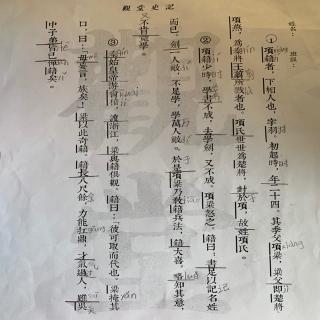 觀堂史記
姓名： 班級：
① 項籍者，下相人也，字羽。初起時，年二十四。其季父項梁，梁父即楚將
項燕，為秦將王翦所戮者也。項氏世世為楚將，封於項，故姓項氏。
② 項籍少時，學書不成，去學劍，又不成。項梁怒之。籍曰：「書足以記名姓
而已。劍一人敵，不足學，學萬人敵。」於是項梁乃教籍兵法，籍大喜，略知其意，
又不肯竟學。
③ 秦始皇帝游會稽，渡浙江，梁與籍俱觀。籍曰：「彼可取而代也。」梁掩其
口，曰：「毋妄言，族矣！」梁以此奇籍。籍長八尺餘，力能扛鼎，才氣過人，雖吳
中子弟皆已憚籍矣。